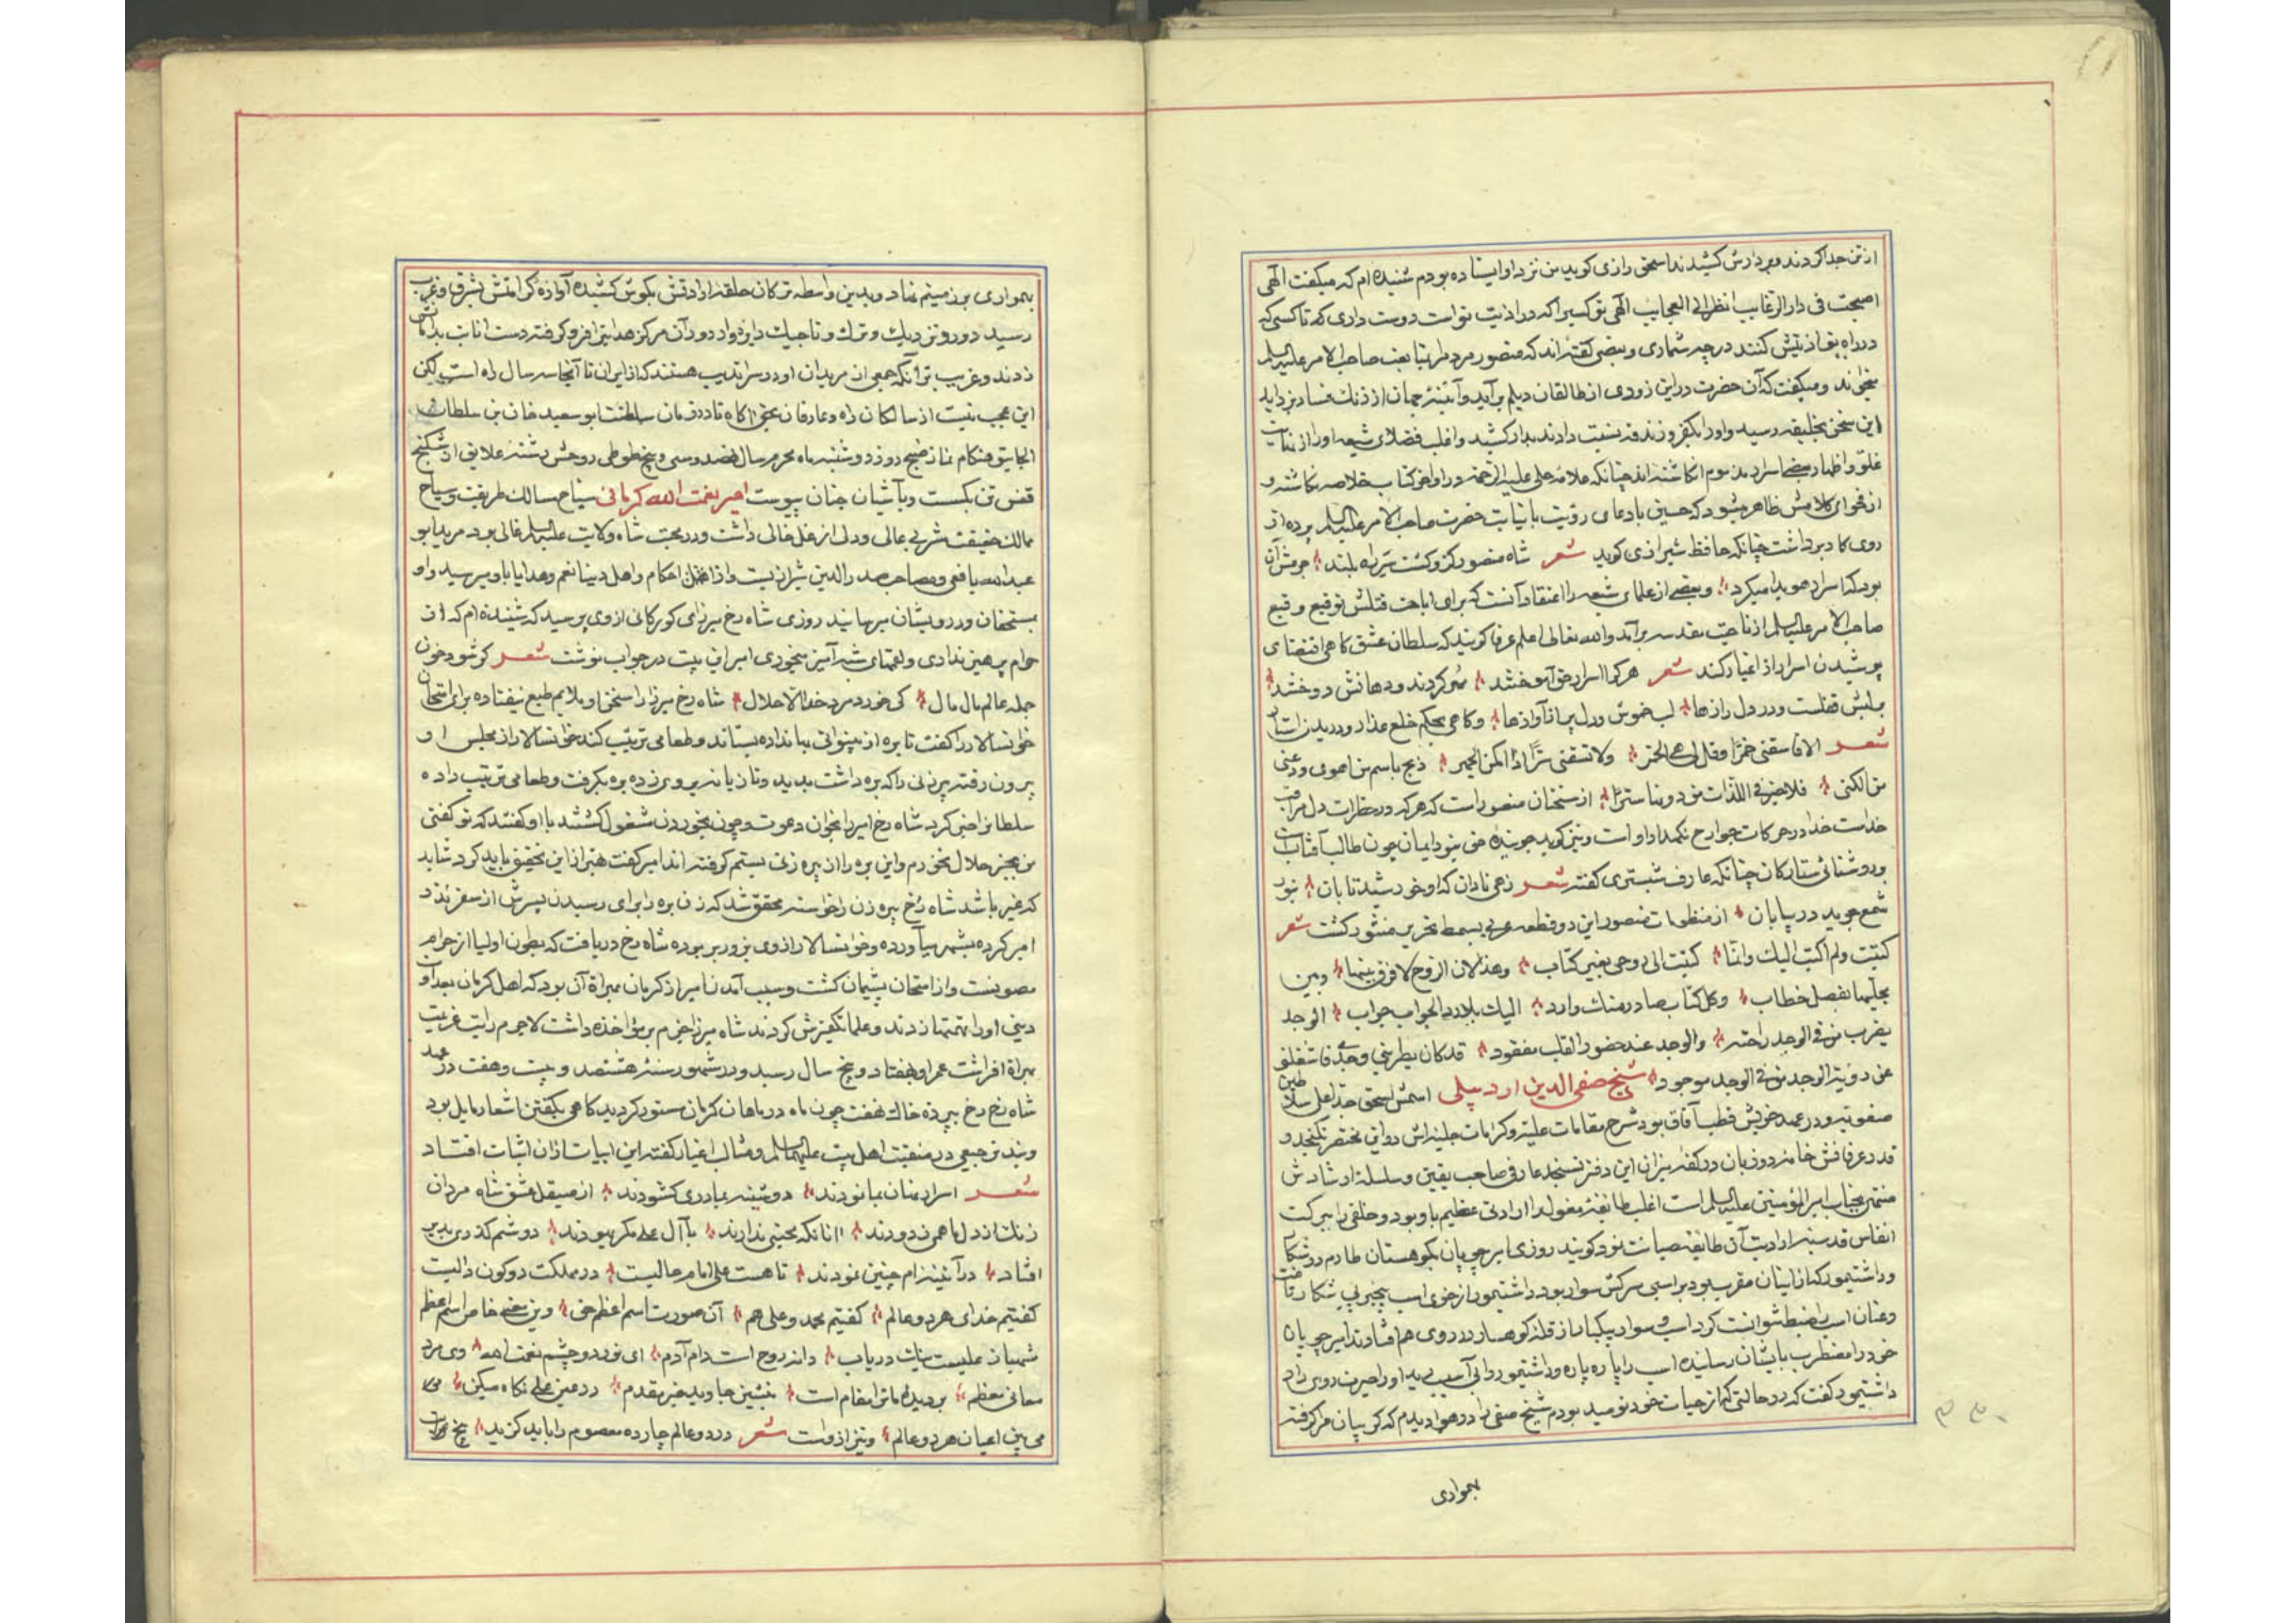 از تن جدا کردند و بر دارش کشیدند اسحق رازی کوید من نزد او ایستاده بودم شنیده‌ام که میکفت الهی
اصبحت فی دار الرغایب انظر الی العجایب الهی تو کسیرا که در اذیت تو است دوست داری که تا کسی که
در راه تو اذیتش کنند در چه شماری و بعضی کفته‌اند که منصور مردم را بمتابعت صاحب الامر علیه السلم
میخواند و میکفت که آن حضرت در این زودی از طالقان دیلم برآید و آئینه جهان از زنک فساد بزداید
این سخن بخلیفه رسید و او را بکفر و زندقه نسبت دادند بدار کشید و اغلب فضلای شیعه او را از
غلو و اظهار بعض اسرار مذموم انکاشته‌اند چنانکه علامه حلی علیه الرحمه در اواخر کتاب خلاصه نکاشته و
از فحوای کلامش ظاهر میشود که حسین با دعای رؤیت با نیابت حضرت صاحب الامر علیه السلم پرده از
روی کار برداشت چنانکه حافظ شیرازی کوید شعر شاه منصور کزو کشت سر دار بلند جرمش آن
بود که اسرار هویدا میکرد و بعضی از علمای شیعه را اعتقاد آنست که برای اباحت قتلش توقیع وقیع
صاحب الامر علیه السلم از ناحیت مقدسه برآمد والله تعالی اعلم عرفا کویند که سلطان عشق کاهی اقتضای
پوشیدن اسرار از اغیار کند شعر هر کرا اسرار حق آموختند مهر کردند و دهانش دوختند
برلبش قفلست و در دل رازها لب خموش و دل پر از آوازها و کاهی بحکم خلع عذار و دریدن استار
شعر الا فاسقنی خمرا وقل لی هی الخمر ولا تسقنی سرا اذا امکن الجهر فبح باسم من اهوی ودعنی
من الکنی فلا خیر فی اللذات من دونها ستر از سخنان منصور است که هر که در خطرات دل مراقب
خداست خدا در حرکات جوارح نکهدار او است و نیز کوید جوینده حق بنور ایمان چون طالب آفتابست
بروشنائی ستارکان چنانکه عارف شبستری کفته شعر زهی نادان که او خورشید تابان بنور
شمع جوید در بیابان از منظومات منصور این دو قطعه عربی بسمط تحریر منثور کشت شعر
کتبت ولم اکتب الیک وانما کتبت الی روحی بغیر کتاب وهذا لان الروح لا فرق بینها وبین
محبیها بفصل خطاب وکل کتاب صادر منک وارد الیک بلا رد الجواب جواب الوجد
یطرب من فی الوجد راحته والوجد عند حضور القلب مفقود قد کان یطربنی وجدی فاشغلنی
عن رؤیة الوجد من فی الوجد موجود شیخ صفی الدین اردبیلی اسمش اسحق جد اعلی سلاطین
صفویه و در عهد خویش قطب آفاق بود شرح مقامات علیه و کرامات جلیه‌اش در این مختصر نکنجد و
قدر عرفانش خامه دو زبان در کفه میزان این دفتر نسنجد عارفی صاحب یقین و سلسله ارشادش
منتهی بجناب امیر المؤمنین علیه السلم است اغلب طایفه مغول را ارادتی عظیم باو بود و خلقی را ببرکت
انفاس قدسیه از اذیت آن طایفه صیانت نمود کویند روزی امیر چوپان بکوهستان طارم در شکار
و داشتیمور که از ایشان مقرب بود بر اسبی سرکش سوار بود داشتیمور از خوی اسب بیخبر پی شکار رفت
و عنان اسب را ضبط نتوانست کرد اسب و سوار بیکبار از قله کوهسار در روی هم افتادند امیر چوپان
خود را مضطرب بایشان رسانیده اسب را پاره پاره و داشتیمور را بی آسیب دید او را حیرت روی داد
داشتیمور کفت که در حالتی که از حیات خود نومید بودم شیخ صفی را در هوا دیدم که کریبان مرا کرفته
بهمواری
بهمواری بر زمینم نهاد و بدین واسطه ترکان حلقه ارادتش بکوش کشیده آوازه کرامتش بشرق و غرب
رسید دور و نزدیک و ترک و تاجیک دایره‌وار دور آن مرکز هدایت را فرو کرفته دست انابت بدامانش
زدند و غریب تر آنکه جمعی از مریدان او در سراندیب هستند که از ایران تا آنجا سه سال راه است لکن
این عجب نیست از سالکان راه و عارفان حق آکاه تا در زمان سلطنت ابو سعید خان بن سلطان
الجایتو هنکام نماز صبح روز دوشنبه ماه محرم سال هفصد و سی و پنج طوطی روحش رشته علایق از شکنج
قفس تن بکسست و بآشیان جنان پیوست امیر نعمت الله کرمانی سیاح مسالک طریقت و سباح
ممالک حقیقت مشربی عالی و دلی از غل خالی داشت و در محبت شاه ولایت علیه السلم غالی بود مرید ابو
عبدالله یافعی و مصاحب صدرالدین شیرازیست و از احکام و اهل دنیا نعم و هدایا باو میرسید و او
بمستحقان و درویشان میرسانید روزی شاه رخ میرزای کورکانی از وی پرسید که شنیده‌ام که از
حرام پرهیز نداری و لقمهای شبهه آمیز میخوری امیر این بیت در جواب نوشت شعر کر شود خون
جمله عالم مال مال کی خورد مرد خدا الا حلال شاه رخ میرزا را سخن او ملایم طبع نیفتاده برای امتحان
خوانسالار را کفت تا بره از بینوائی بی اندازه بستاند و طعامی ترتیب کند خوانسالار از مجلس او
بیرون رفته پیرزنی را که بره داشت بدید و تازیانه بر وی زده بره بکرفت و طعامی ترتیب داده
سلطانرا خبر کرد شاه رخ امیر را بخوان دعوت و چون بخوردن مشغول کشتند باو کفتند که تو کفتی
من بجز حلال نخورم و این بره را از پیره زنی بستم کرفته‌اند امیر کفت بهتر از این تحقیق باید کرد شاید
که غیر باشد شاه رخ پیره زن را خواسته محقق شد که زن بره را برای رسیدن پسرش از سفر نذر
امیر کرده بشهر میآورده و خوانسالار از وی بزور برده بوده شاه رخ دریافت که بطون اولیا از حرام
مصونست و از امتحان پشیمان کشت و سبب آمدن امیر از کرمان بهراة آن بود که اهل کرمان ببد
دینی او را تهمتها زدند و علما تکفیرش کردند شاه میرزا خرم بر مؤاخذه داشت لاجرم رایت عزیمت
بهراة افراشت عمر او بهفتاد و پنج سال رسید و در شهور سنه هشتصد و بیست و هفت در عهد
شاه رخ رخ بپرده خاک نهفت چون ماه در ماهان کرمان مستور کردید کاهی بکفتن اشعار مایل بود
و بند ترجیعی در منقبت اهل بیت علیهم السلم و مثالب اغیار کفته این ابیات از آن اثبات افتاد
شعر اسرار نهان بما نمودند دوشینه بما دری کشودند از صیقل عشق شاه مردان
زنک از دل ما همی زدودند آنانکه محبتی ندارند با آل علی مکر یهودند دوشم کذری بدیر
افتاد در آینه‌ام چنین نمودند تا هست علی امام حالیست در مملکت دو کون والیست
کفتیم خدای هر دو عالم کفتیم محمد و علی هم آن صورت اسم اعظم حق وین معنی خاص اسم اعظم
شهباز علیست نیک دریاب دانه روح است و دام آدم ای نور دو چشم نعمت الله وی مرد
معانی معظم بر دیده ما ترا مقام است بنشین جاوید خیر مقدم در عین علی نکاه میکن
می بین اعیان هر دو عالم و نیز از اوست شعر در دو عالم چارده معصوم را باید کزید پنج